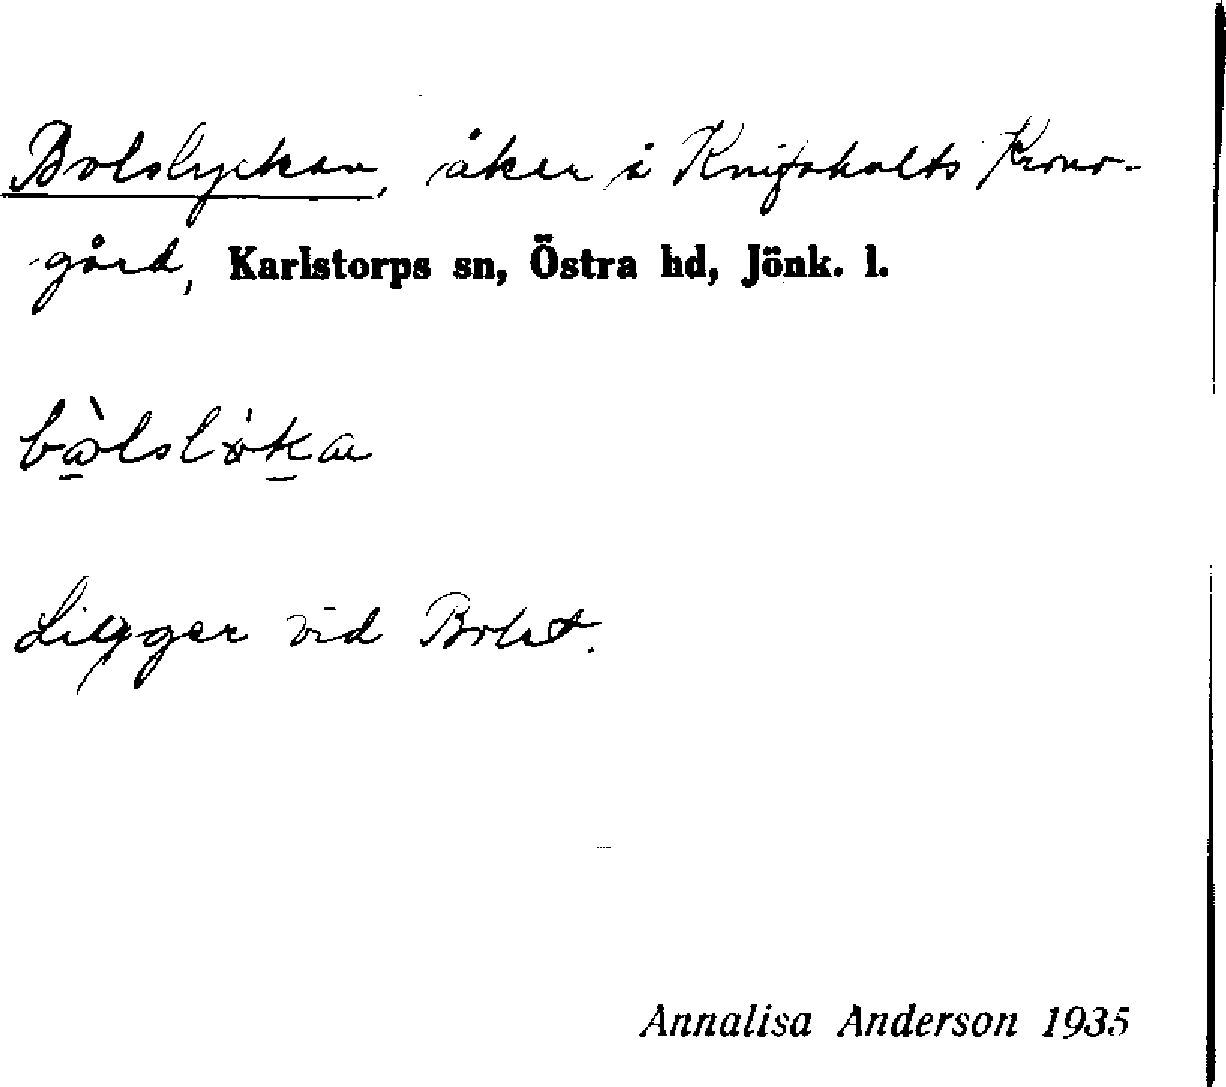 Bolslyckan, åker i Knifsholts Krono-
gård, Karlstorps sn, Östra hd, Jönk. l.
Ligger vid Bolet.
Annalisa Anderson 1935